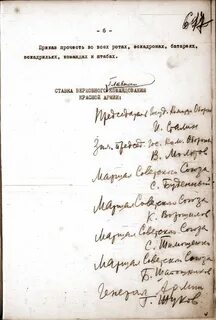 - 6 -
Приказ прочесть во всех ротах, эскадронах, батареях,
эскадрильях, командах и штабах.
СТАВКА ВЕРХОВНОГО КОМАНДОВАНИЯ
КРАСНОЙ АРМИИ:
Председатель Госуд. Комит. Обороны
И. Сталин
Зам. председ. Гос. Ком. Обороны
В. Молотов
Маршал Советского Союза
С. Буденный
Маршал Советского Союза
К. Ворошилов
Маршал Советского Союза
С. Тимошенко
Маршал Советского Союза
Б. Шапошников
Генерал Армии
Г. Жуков